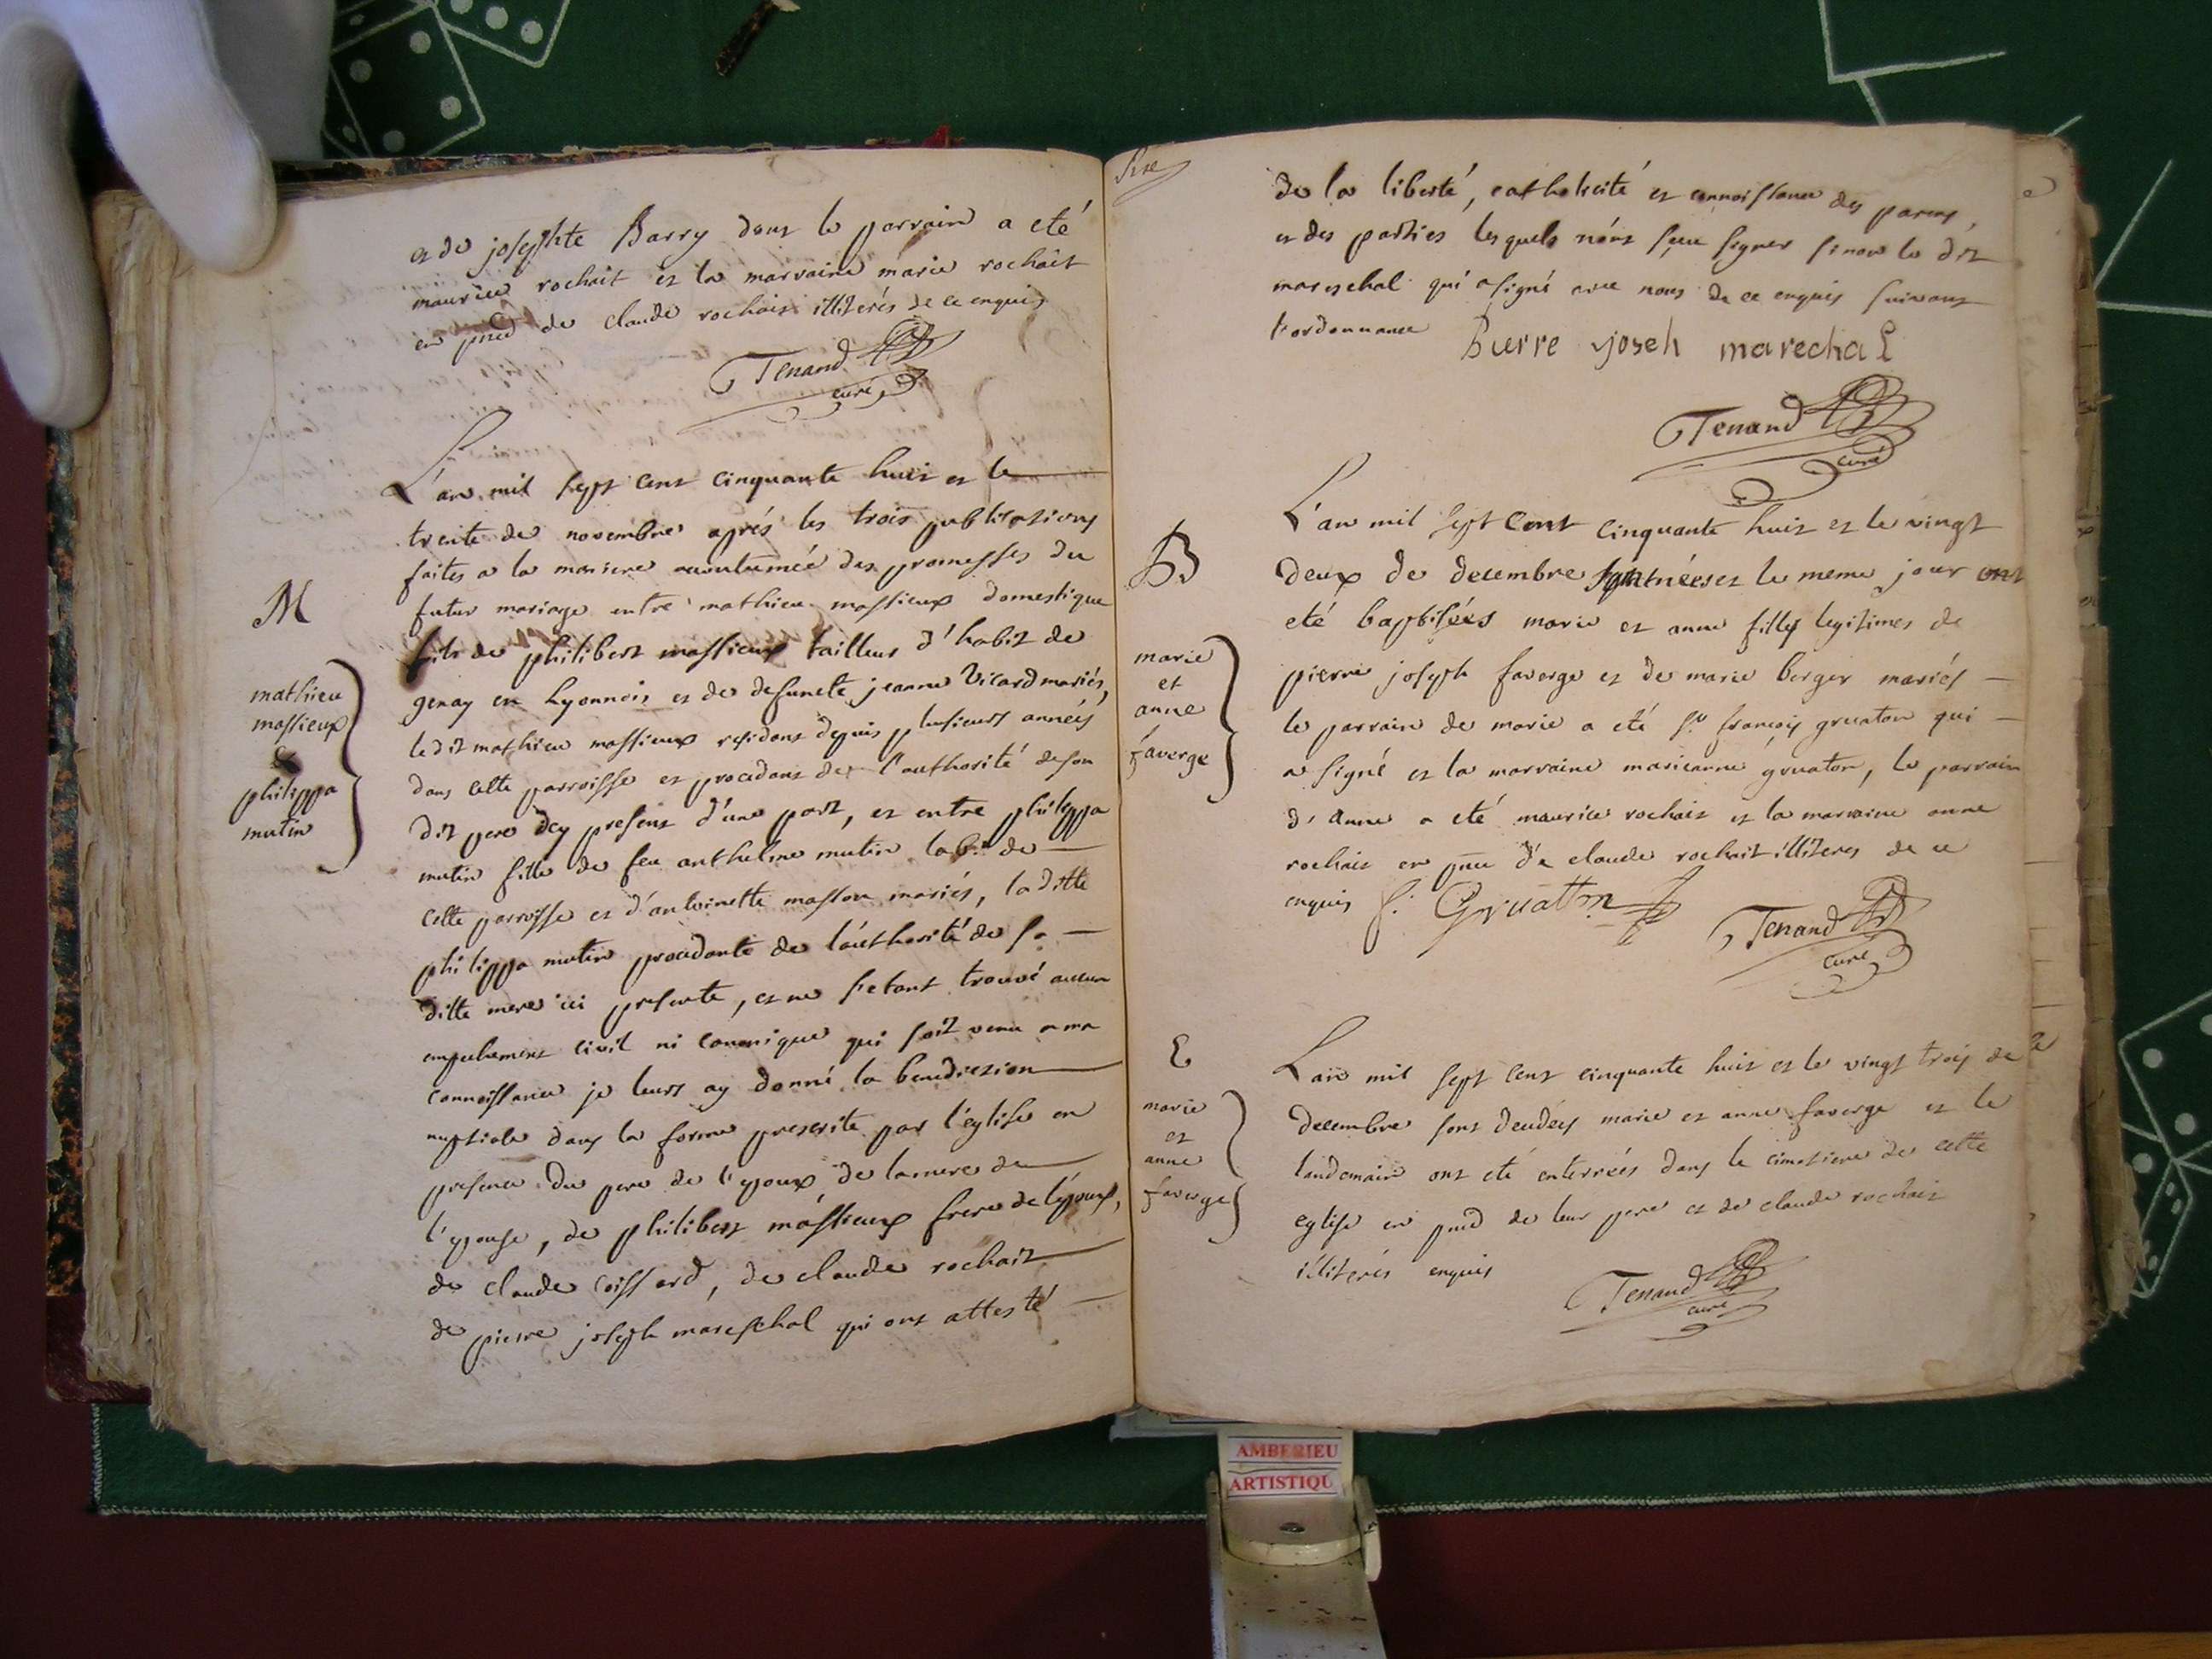 et de josephte Barry dont le parrain a eté
maurice rochait et la marraine marie rochait
en pnce de claude rochait illiterés de ce enquis
Tenand
curé
L'an mil sept cent cinquante huit et le
trente de novembre aprés les trois publications
faites a la maniere accoutumée des promesses du
M
futur mariage entre mathieu massieux domestique
fils de philibert massieux tailleur d'habit de
genay en Lyonnois et de defuncte jeanne Vicard mariés,
mathieu
massieux
&
philippa
mutin
ledit mathieu massieux residant depuis plusieurs années
dans cette parroisse et procedant de l'authorité deson
dit pere icy present d'une part, et entre philippa
mutin fille de feu anthelme mutin labr. de
cette parroisse et d'antoinette masson mariés, la ditte
philippa mutin procedante de l'authorité de sa
ditte mere ici presente, et ne s'etant trouvé aucun
empechement civil ni canonique qui soit venu a ma
connoissance je leurs ay donné la benediction
nuptiale dans la forme prescrite par l'eglise en
presence du pere de l'epoux de la mere de
l'epouse, de philibert massieux frere de l'epoux,
de claude coissard, de claude rochait
de pierre joseph mareschal qui ont attesté
de la liberté, catholicité et connoissance des parens,
et des parties lesquels n'ont sçeu signer sinon le dit
mareschal qui a signé avec nous de ce enquis suivant
l'ordonnance
Pierre joseh marechal
Tenand
curé
B
L'an mil sept cent cinquante huit et le vingt
deux de decembre sont néeset le meme jour ont
eté baptisées marie et anne filles legitimes de
marie
et
anne
faverge
pierre joseph faverge et de marie berger mariés
le parrain de marie a eté sr. françois gruaton qui
a signé et la marraine marieanne gruaton, le parrain
d'anne a eté maurice rochait et la marraine anne
rochait en pnce de claude rochait illiteres de ce
enquis
f. Gruatton
Tenand
curé
E
L'an mil sept cent cinquante huit et le vingt trois de
marie
et
anne
faverge
decembre sont decedées marie et anne faverge et le
landemain ont eté enterrées dans le cimetiere de cette
eglise en pnce de leur pere et de claude rochait
illiterés enquis
Tenand
curé
AMBERIEU
ARTISTIQU